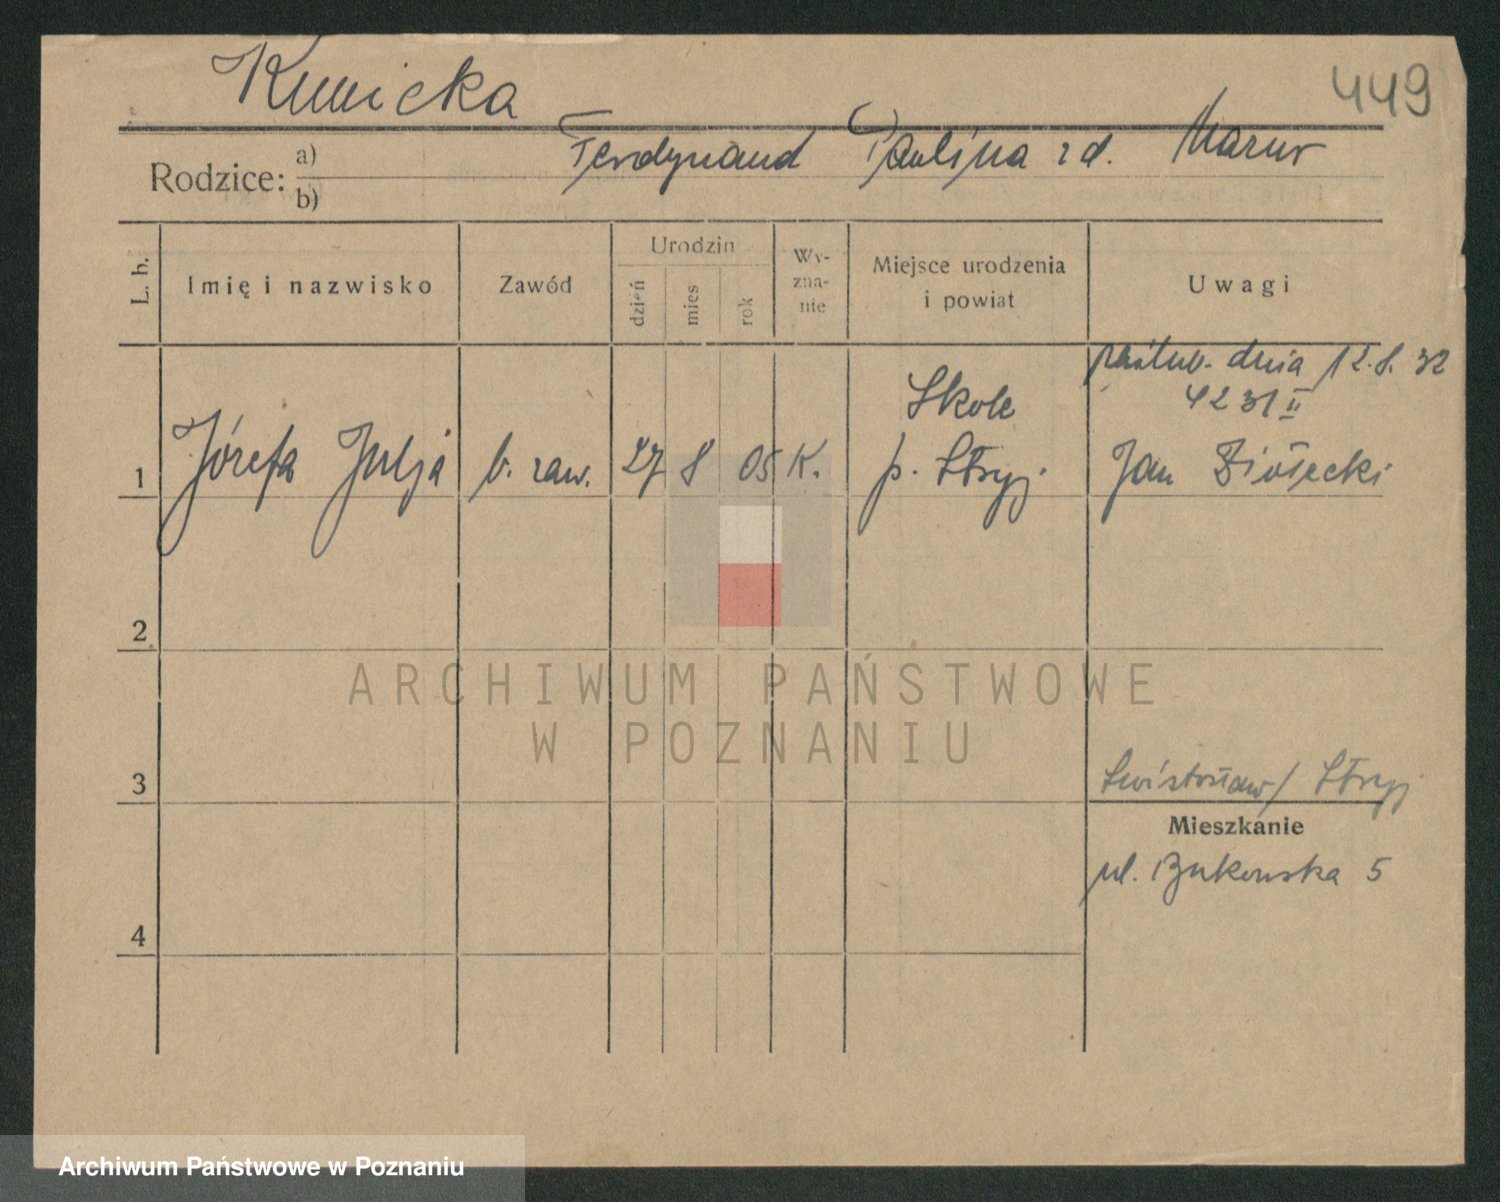 449
Rodzice: a)
b)
Ferdynand Paulina zd. Mazur
L. b.
Imię i nazwisko
Zawód
Urodzin
dzień
mies
rok
Wy-
zna-
nie
Miejsce urodzenia
i powiat
Uwagi
dnia 12.8.32
4231 II
Skole
1 Józefa Julja b. zaw. 27 8 05 K. p. Stryj. Jan
2
ARCHIWUM PAŃSTWOWE
W POZNANIU
3
Stryj
Mieszkanie
ul. Bukowska 5
4
Archiwum Państwowe w Poznaniu